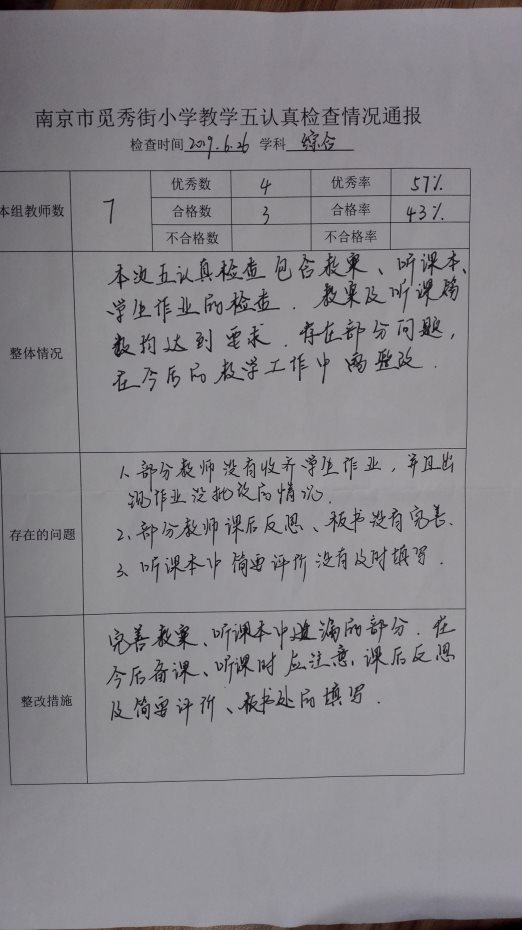 南京市觅秀街小学教学五认真检查情况通报
检查时间 2019.6.26 学科 综合
本组教师数 7 优秀数 4 优秀率 57%
合格数 3 合格率 43%
不合格数 不合格率
整体情况
本次五认真检查包含教案、听课本、
学生作业的检查．教案及听课篇
数均达到要求．存在部分问题，
在今后的教学工作中需整改．
存在的问题
1、部分教师没有收齐学生作业，并且出
现作业没批改的情况．
2、部分教师课后反思、板书没有完善．
3、听课本中简要评价没有及时填写．
整改措施
完善教案、听课本中遗漏的部分．在
今后备课、听课时应注意，课后反思
及简要评价、板书处的填写．